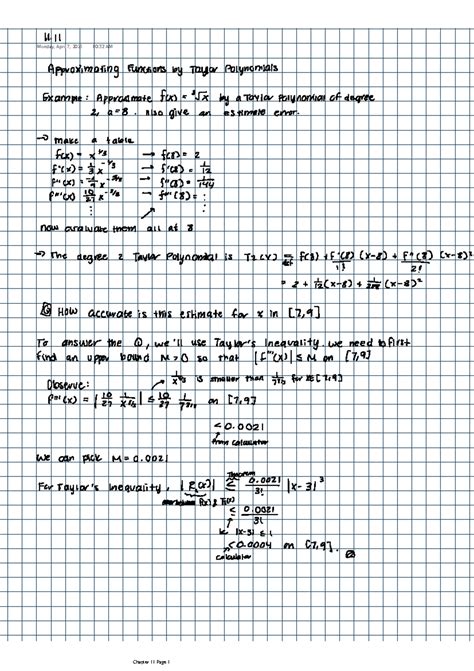 11.11
Monday, April 7, 2025 10:32 AM
Approximating Functions by Taylor Polynomials
Example: Approximate f(x) = ³√x by a Taylor Polynomial of degree
2, a=8. Also give an estimate error.
→ make a table
f(x) = x^1/3 → f(8) = 2
f'(x) = 1/3 x^-2/3 → f'(8) = 1/12
f''(x) = -2/9 x^-5/3 → f''(8) = 1/144
f'''(x) 10/27 x^-8/3 → f'''(8) = ⋮
⋮
now evaluate them all at 8
→ The degree 2 Taylor Polynomial is T2(x) =def f(8) + f'(8)/1! (x-8) + f''(8)/2! (x-8)²
= 2 + 1/12(x-8) + 1/288(x-8)²
Q How accurate is this estimate for x in [7,9]
To answer the Q, we'll use Taylor's Inequality. we need to first
find an upper bound M>0 so that |f'''(x)| ≤ M on [7,9]
1/x^8/3 is smaller than 1/7^8/3 for x∈[7,9]
Observe:
f'''(x) = |10/27 1/x^8/3| ≤ 10/27 1/7^8/3 on [7,9]
< 0.0021
from calculator
we can pick M = 0.0021
For Taylor's Inequality, |R2(x)| ≤ 0.0021/3! |x-3|³
Theorem
f(x) & T2(x)
≤ 0.0021/3!
bc |x-3| ≤ 1
< 0.0004 on [7,9].
calculator
Chapter 11 Page 1